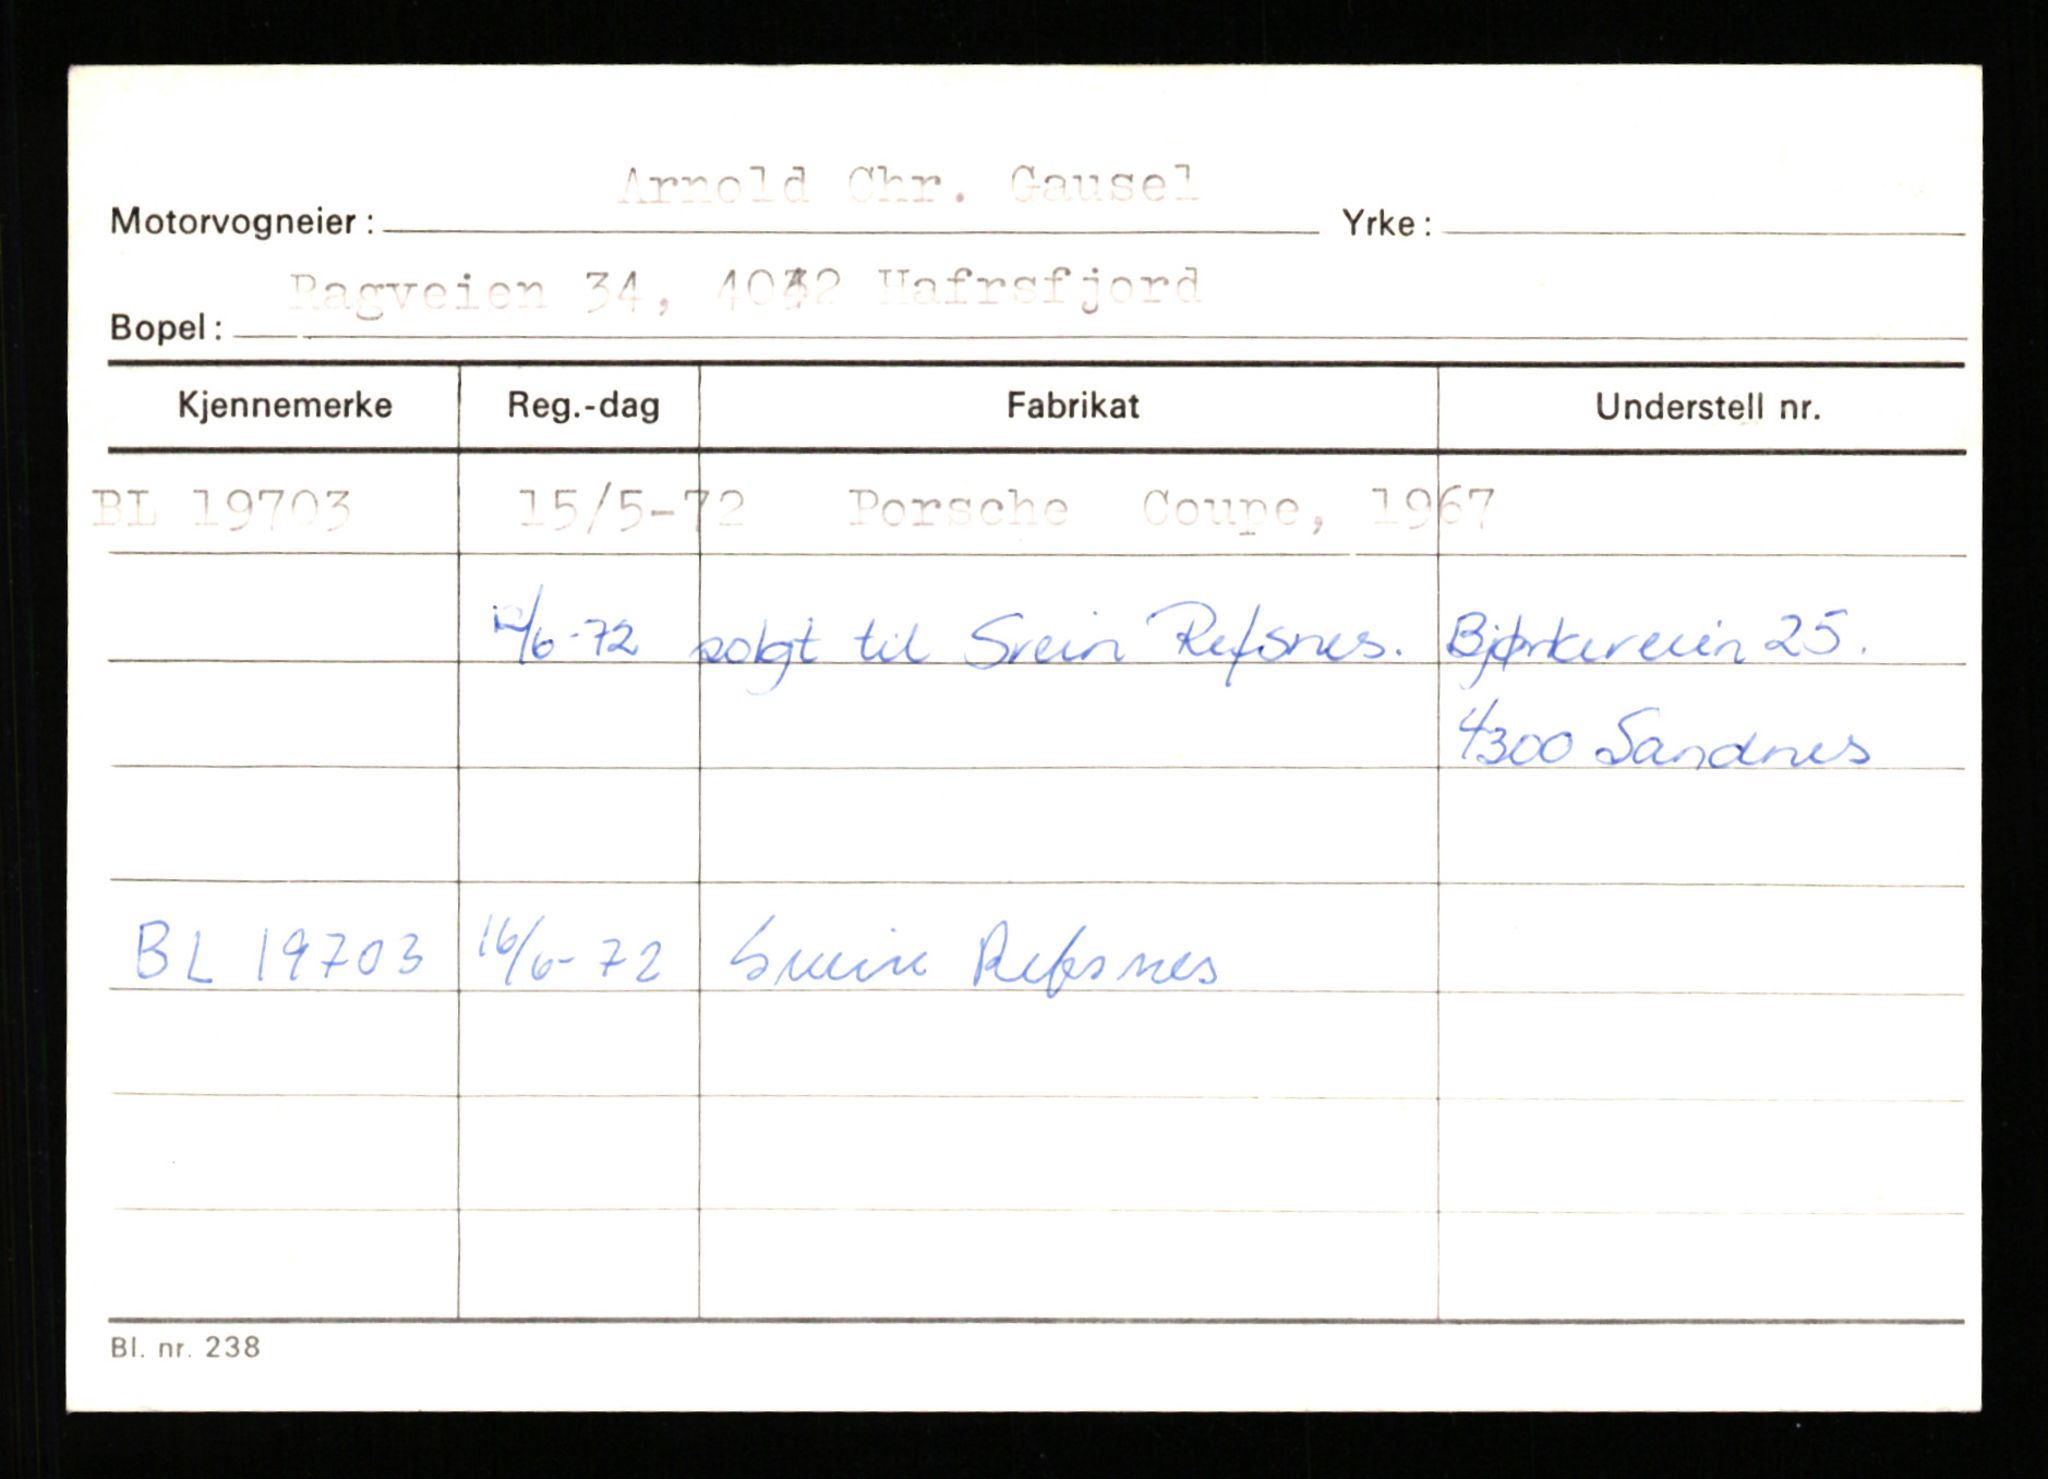 Arnold Chr. Gausel
Motorvogneier: Yrke:
Ragveien 34, 4042 Hafrsfjord
Bopel:
Kjennemerke Reg.-dag Fabrikat Understell nr.
BL 19703 15/5-72 Porsche Coupe, 1967
12/6-72 solgt til Svein Refsnes. Bjørkveien 25.
4300 Sandnes
BL 19703 16/6-72 Svein Refsnes
Bl. nr. 238